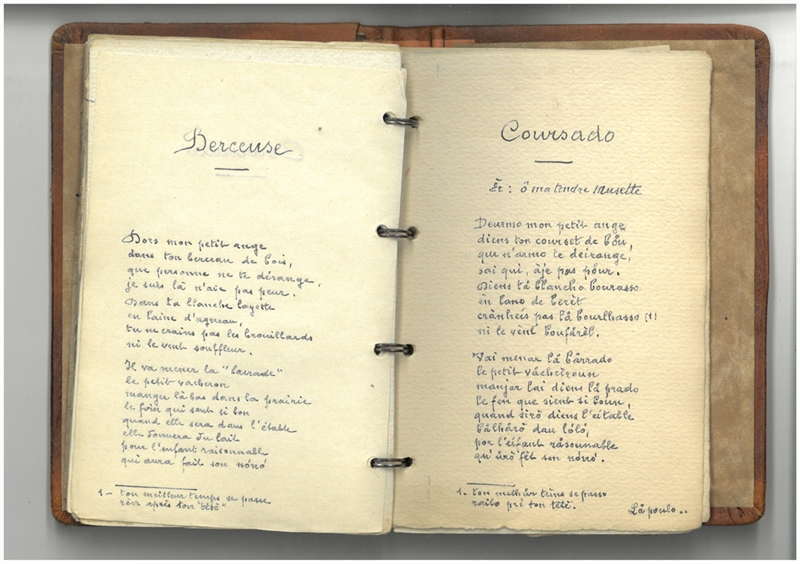 Berceuse
Dors mon petit ange
dans ton berceau de bois,
que personne ne te dérange,
je suis là n'aie pas peur.
Dans ta blanche layette
en laine d'agneau,
tu ne crains pas les brouillards
ni le vent souffleur.
Il va mener la "barrade"
le petit vacheron
manger là bas dans la prairie
le foin qui sent si bon
quand elle sera dans l'étable
elle donnera du lait
pour l'enfant raisonnable
qui aura fait son nónó
1 - ton meilleur temps se passe
rêve après ton "tété"
Coursado
Èr : ô ma tendre Musette
Deurmo mon petit ange
diens ton courset de bôu,
que n'armo te deirange,
sai qui, àje pas pôur.
Diens tà blancho bourasso
en lano de berit
crànheis pas là bourlhasso (1)
ni le vent boufàrèl.
Vai menar là bàrrado
le petit vàcheiroun
manjar lai diens là prado
le fen que sient si boun,
quand sirò diens l'eitable
bàlhàrò dau lóló,
por l'eifant ràsounnable
qu'àurò fèt son nónó.
1. ton melhàur tems se passo
raibo prì ton tètè.
Là poulo ..